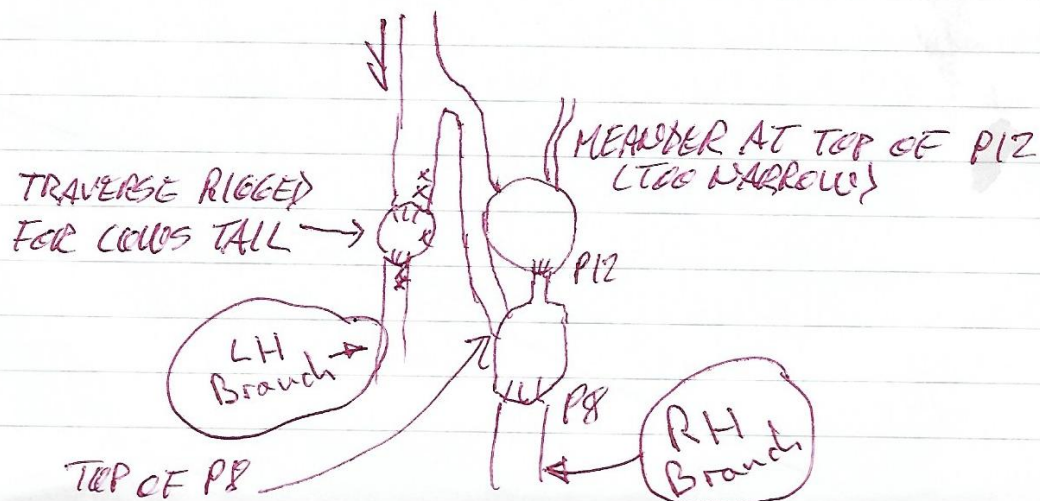 MEANDER AT TOP OF P12
(TOO NARROW)
TRAVERSE RIGGED
FOR COWS TAIL
P12
LH
Branch
P8
RH
Branch
TOP OF P8